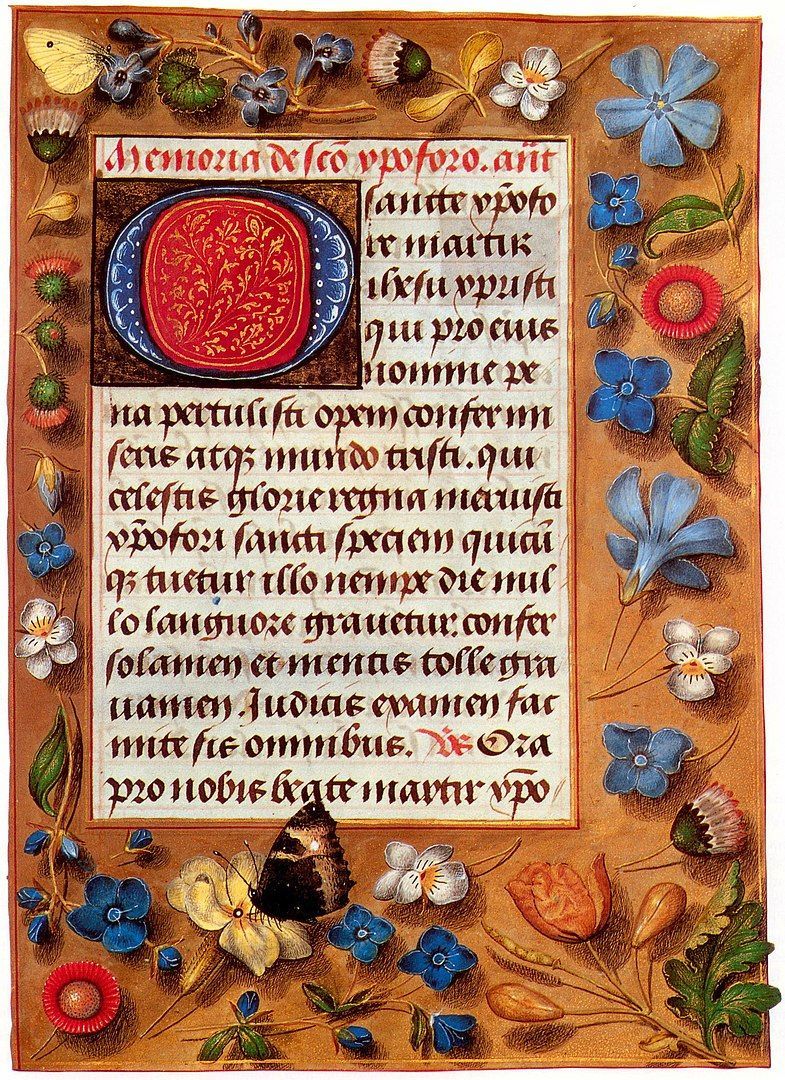 Memoria de scō xpoforo. an̄t
O sancte xp̄ofo
re martir
ihesu xpristi
qui pro eius
nomine pe
na pertulisti opem confer mi
seris atqꝫ mundo tristi. qui
celestis glorie regna meruisti
xp̄ofori sancti speciem quicū
qꝫ tuetur illo nempe die nul
lo languore grauetur. confer
solamen et mentis tolle gra
uamen. Iudicis examen fac
mite sis omnibus. Vs̄ Ora
pro nobis beate martir xp̄o